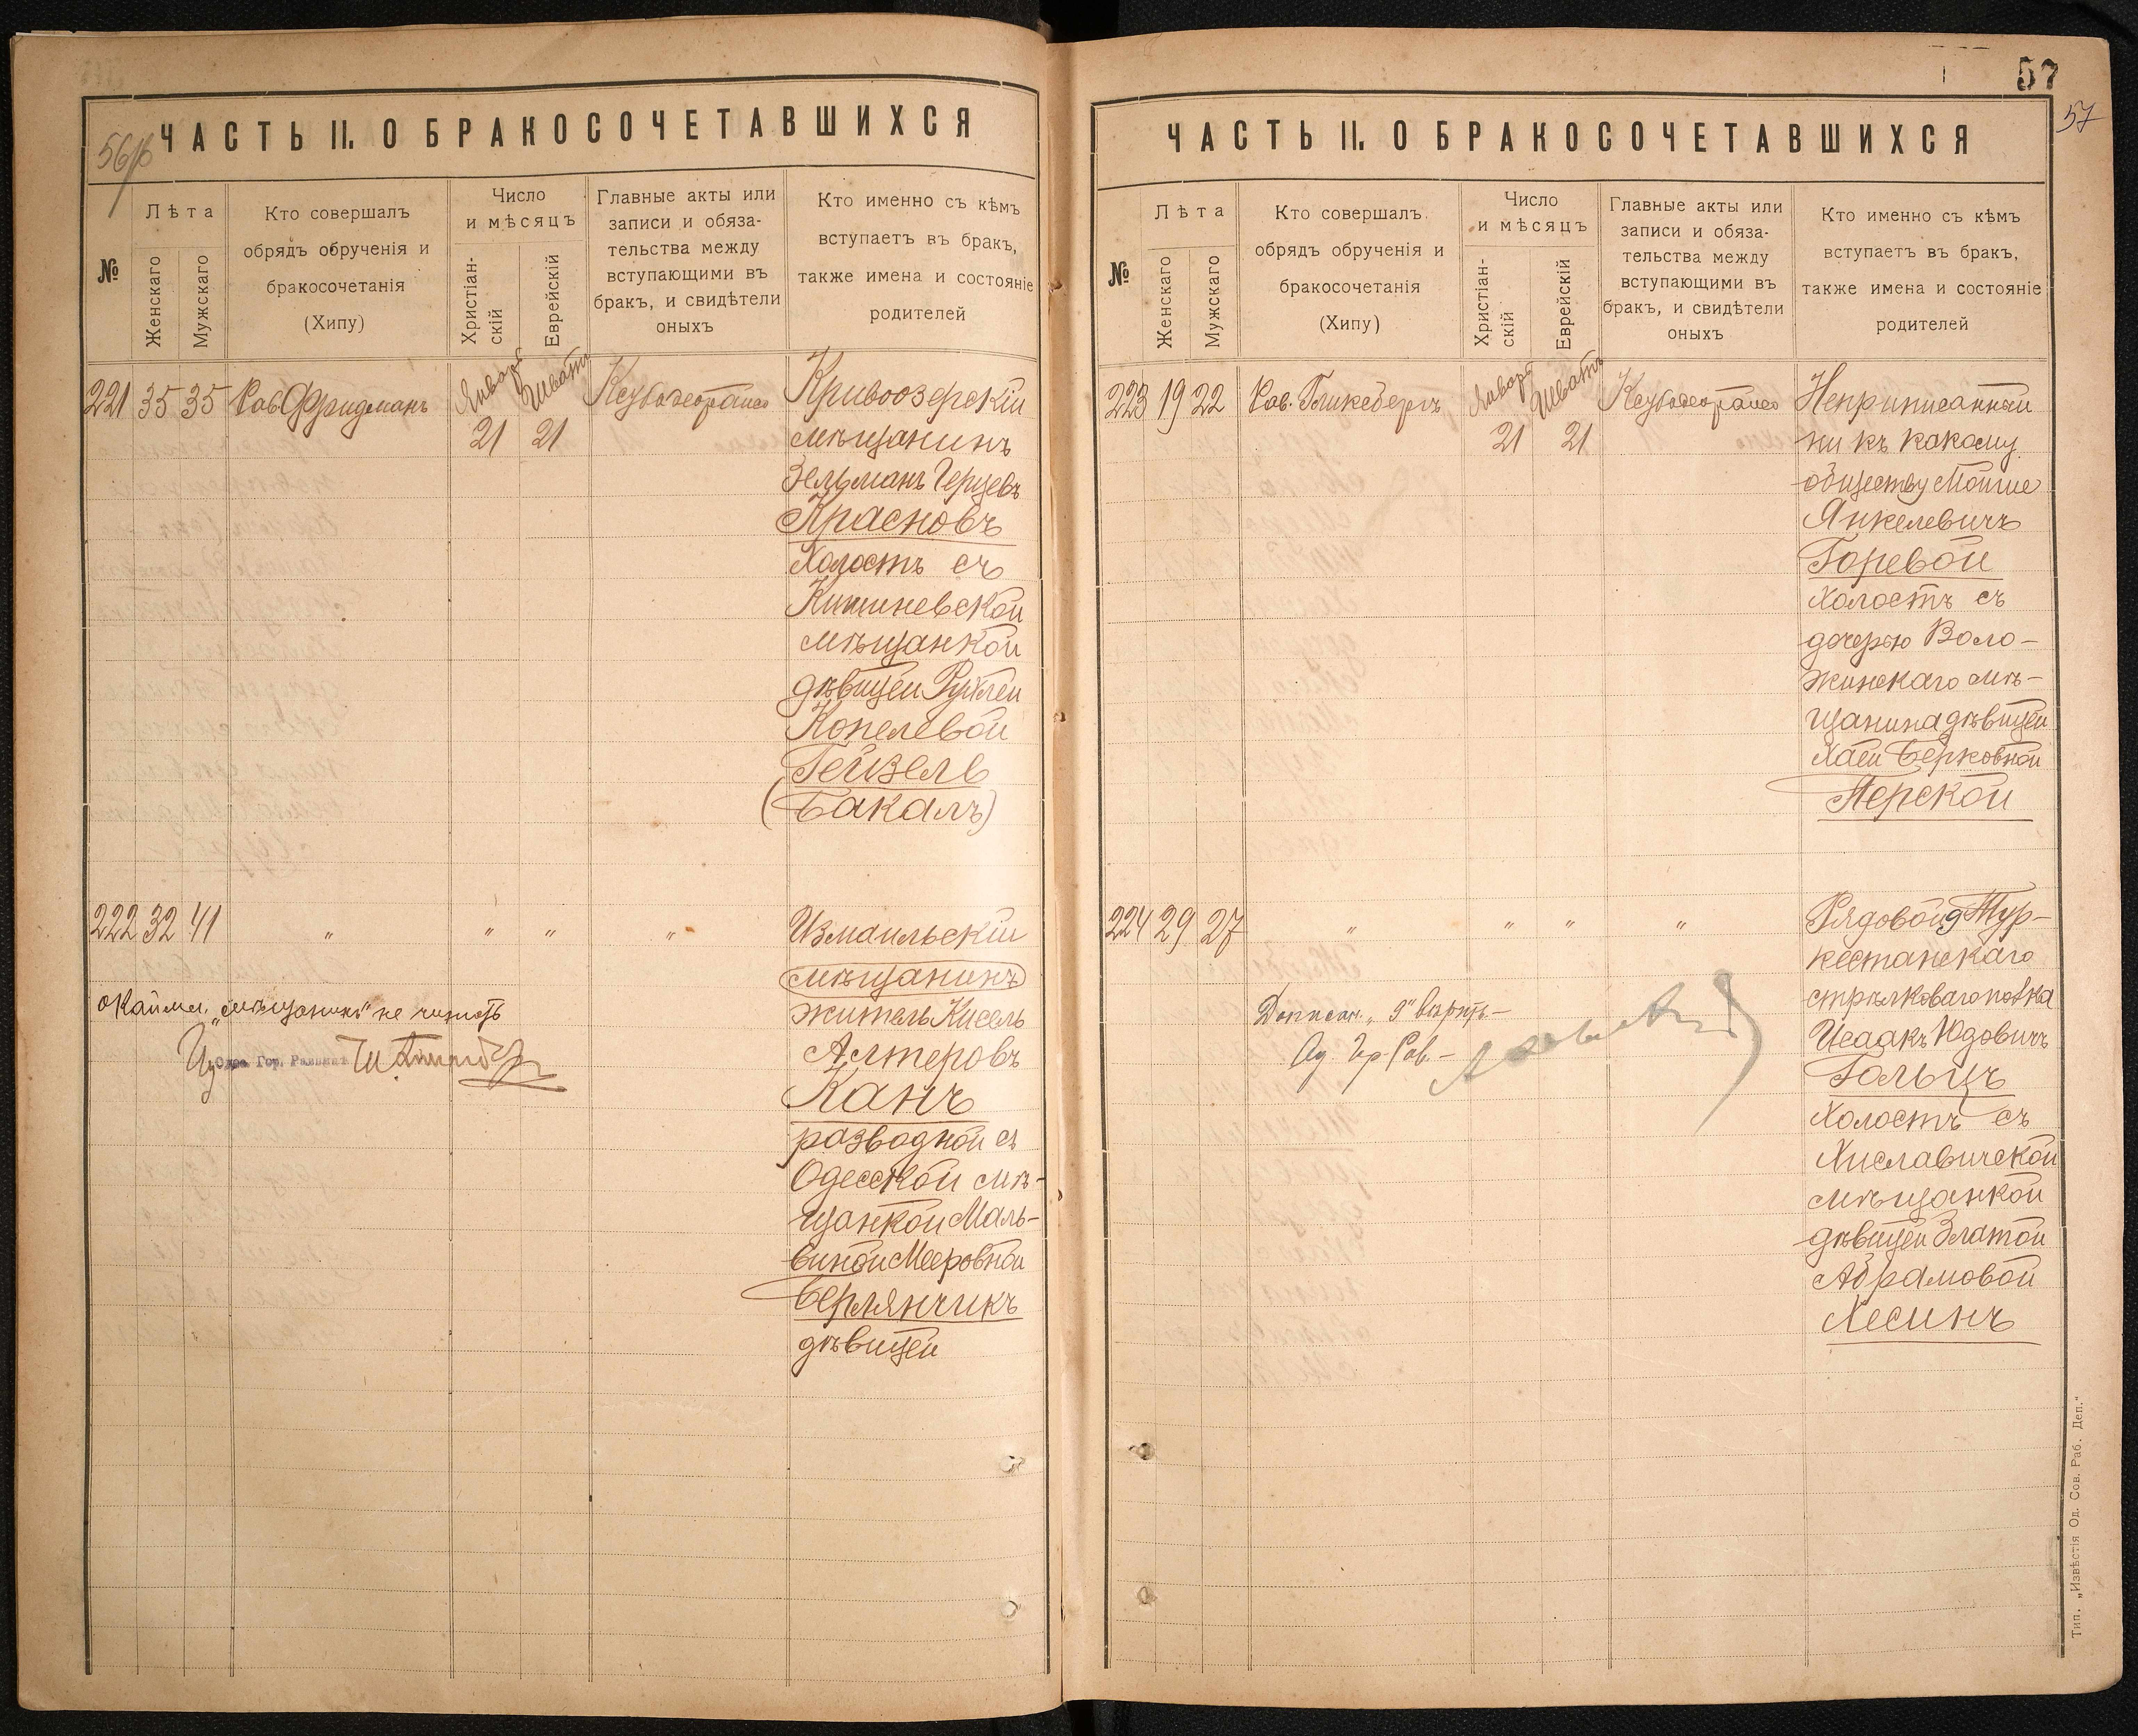 56об
ЧАСТЬ II. О БРАКОСОЧЕТАВШИХСЯ
№
Лѣта
Женскаго
Мужскаго
Кто совершалъ
обрядъ обрученія и
бракосочетанія
(Хипу)
Число
и мѣсяцъ
Христіан-
скій
Еврейскій
Главные акты или
записи и обяза-
тельства между
вступающими въ
бракъ, и свидѣтели
оныхъ
Кто именно съ кѣмъ
вступаетъ въ бракъ,
также имена и состояніе
родителей
221 35 35 Рав. Фридманъ
Январь Шватъ
21 21
Кривоозерскій
мѣщанинъ
Зельманъ Герцевъ
Красновъ
холостъ съ
Кишиневской
мѣщанкой
дѣвицей Рухлей
Копелевой
Гейзель
(Бакалъ)
222 32 41 " " " "
Измаильскій
мѣщанинъ
житель Кисель
Алтеровъ
Канъ
разводной съ
Одесской мѣ-
щанкой Маль-
виной Мееровной
Берлянчикъ
дѣвицей
Окаймл. „мѣщанинъ" не читать
Гор. Раввинъ
57
57
ЧАСТЬ II. О БРАКОСОЧЕТАВШИХСЯ
№
Лѣта
Женскаго
Мужскаго
Кто совершалъ
обрядъ обрученія и
бракосочетанія
(Хипу)
Число
и мѣсяцъ
Христіан-
скій
Еврейскій
Главные акты или
записи и обяза-
тельства между
вступающими въ
бракъ, и свидѣтели
оныхъ
Кто именно съ кѣмъ
вступаетъ въ бракъ,
также имена и состояніе
родителей
223 19 22 Рав. Гликсбергъ
Январь Шватъ
21 21
Неприписанный
ни къ какому
обществу Мойше
Янкелевичъ
Горевой
холостъ съ
дочерью Воло-
жинскаго мѣ-
щанина дѣвицей
Хаей Берковной
Перской
224 29 27 " " " "
Рядовой 9 Тур-
кестанскаго
стрѣлковаго полка
Исаакъ Юдовичъ
Гольцъ
холостъ съ
Хиславичской
мѣщанкой
дѣвицей Златой
Абрамовой
Хесинъ
Дописан. „9" вѣрить. –
Од. Гр. Рав. –
Тип. „Извѣстія Од. Сов. Раб. Деп."